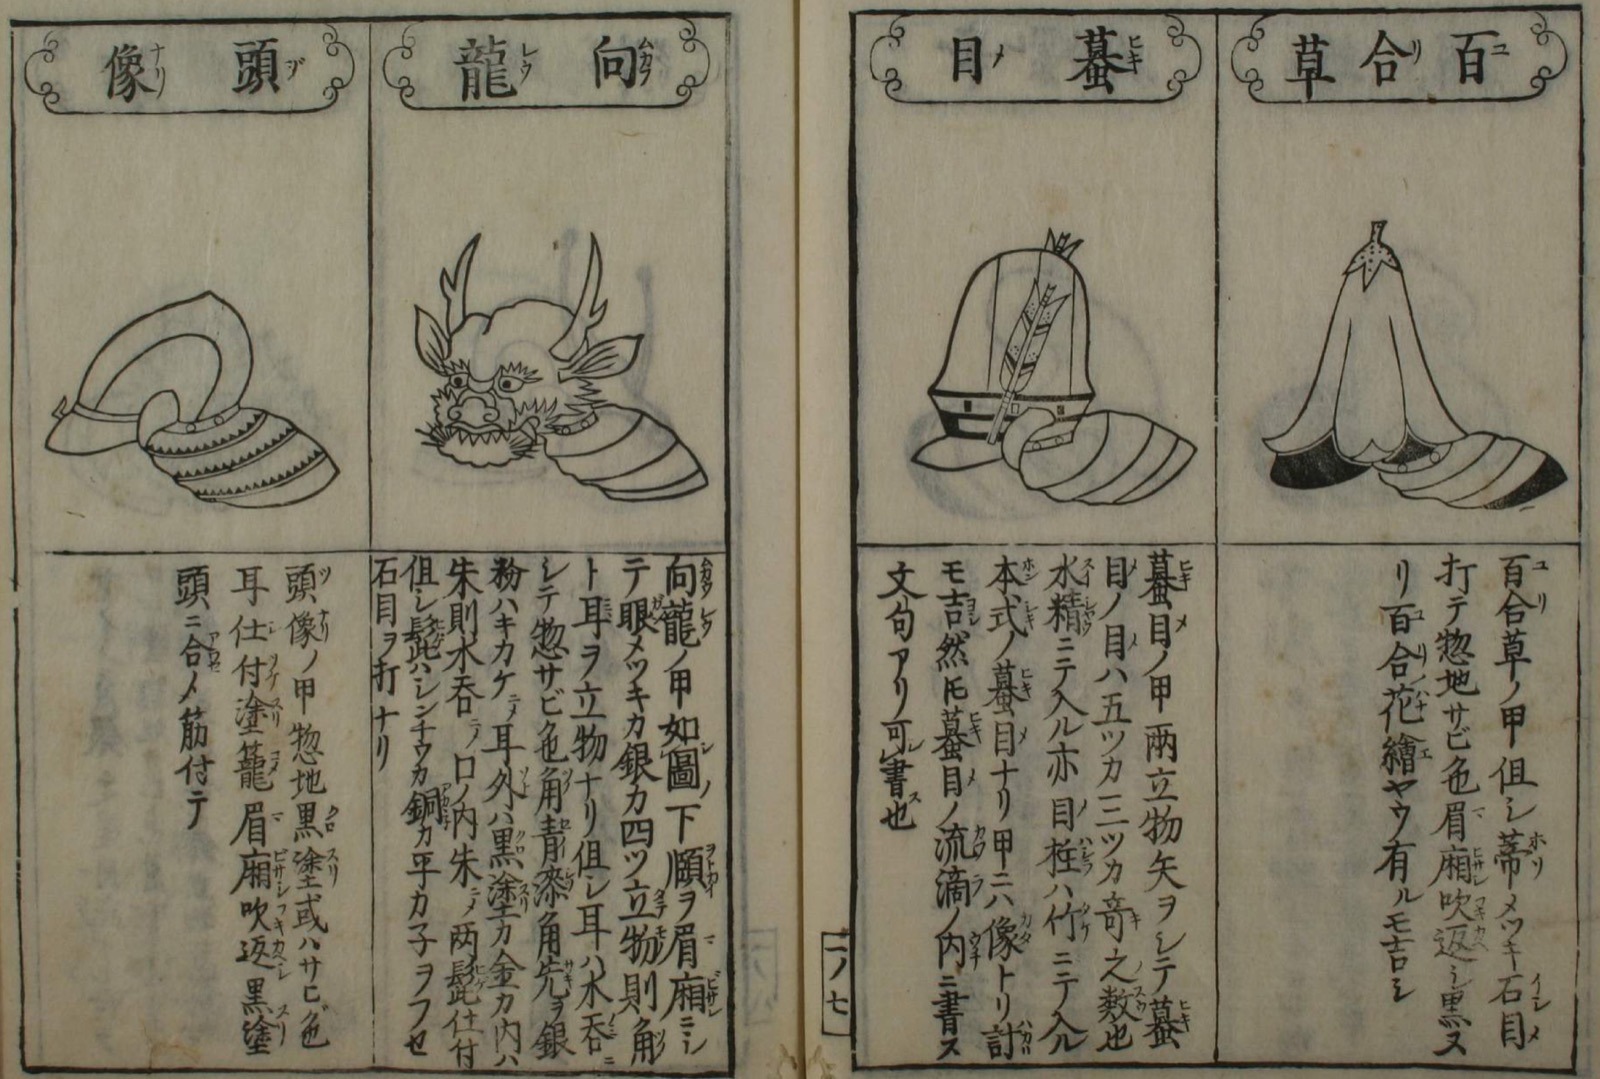 百合草
百合草ノ甲但シ蒂メツキ石目
打テ惣地サビ色眉廂吹返シ黒ヌ
リ百合花繪ヤウ有ルモ吉シ
蟇目
蟇目ノ甲兩立物矢ヲシテ蟇
目ノ目ハ五ツカ三ツカ奇之数也
水精ニテ入ル亦目柱ハ竹ニテ入ル
本式ノ蟇目ナリ甲ニハ像トリ計
モ吉然氐蟇目ノ流滴ノ内ニ書ス
文句アリ可書也
二ノ七
向龍
向龍ノ甲如圖下頤ヲ眉廂ニシ
テ眼メツキカ銀カ四ツ立物則角
ト耳ヲ立物ナリ但シ耳ハ木呑ニ
シテ惣サビ色角青漆角先ヲ銀
粉ハキカケニメ耳外ハ黒塗カ金カ内ハ
朱則木呑ニメ口ノ内朱ニメ两髭仕付
但シ髭ハシンチウカ銅カ平カ子ヲフセ
石目ヲ打ナリ
頭像
頭像ノ甲惣地黒塗或ハサビ色
耳仕付塗籠眉廂吹返黒塗
頭ニ合メ筋付テ